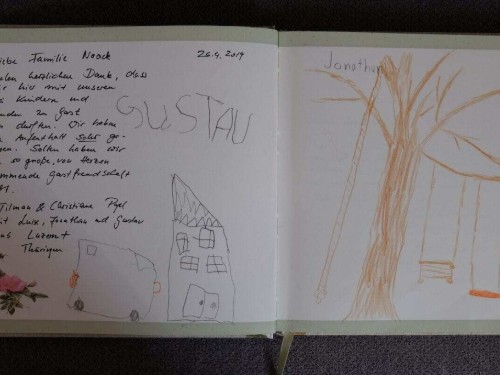 iebe Familie Noack
26.4.2019
elen herzlichen Dank, dass
hier mit unseren
Kindern und
nden zu Gast
n durften. Wir haben
Aufenthalt sehr ge-
en. Selten haben wir
so große, von Herzen
mmende Gastfreundschaft
Tilman & Christiane
it Luise, Jonathan und Gustav
Thüringen
GUSTAV
Jonathan